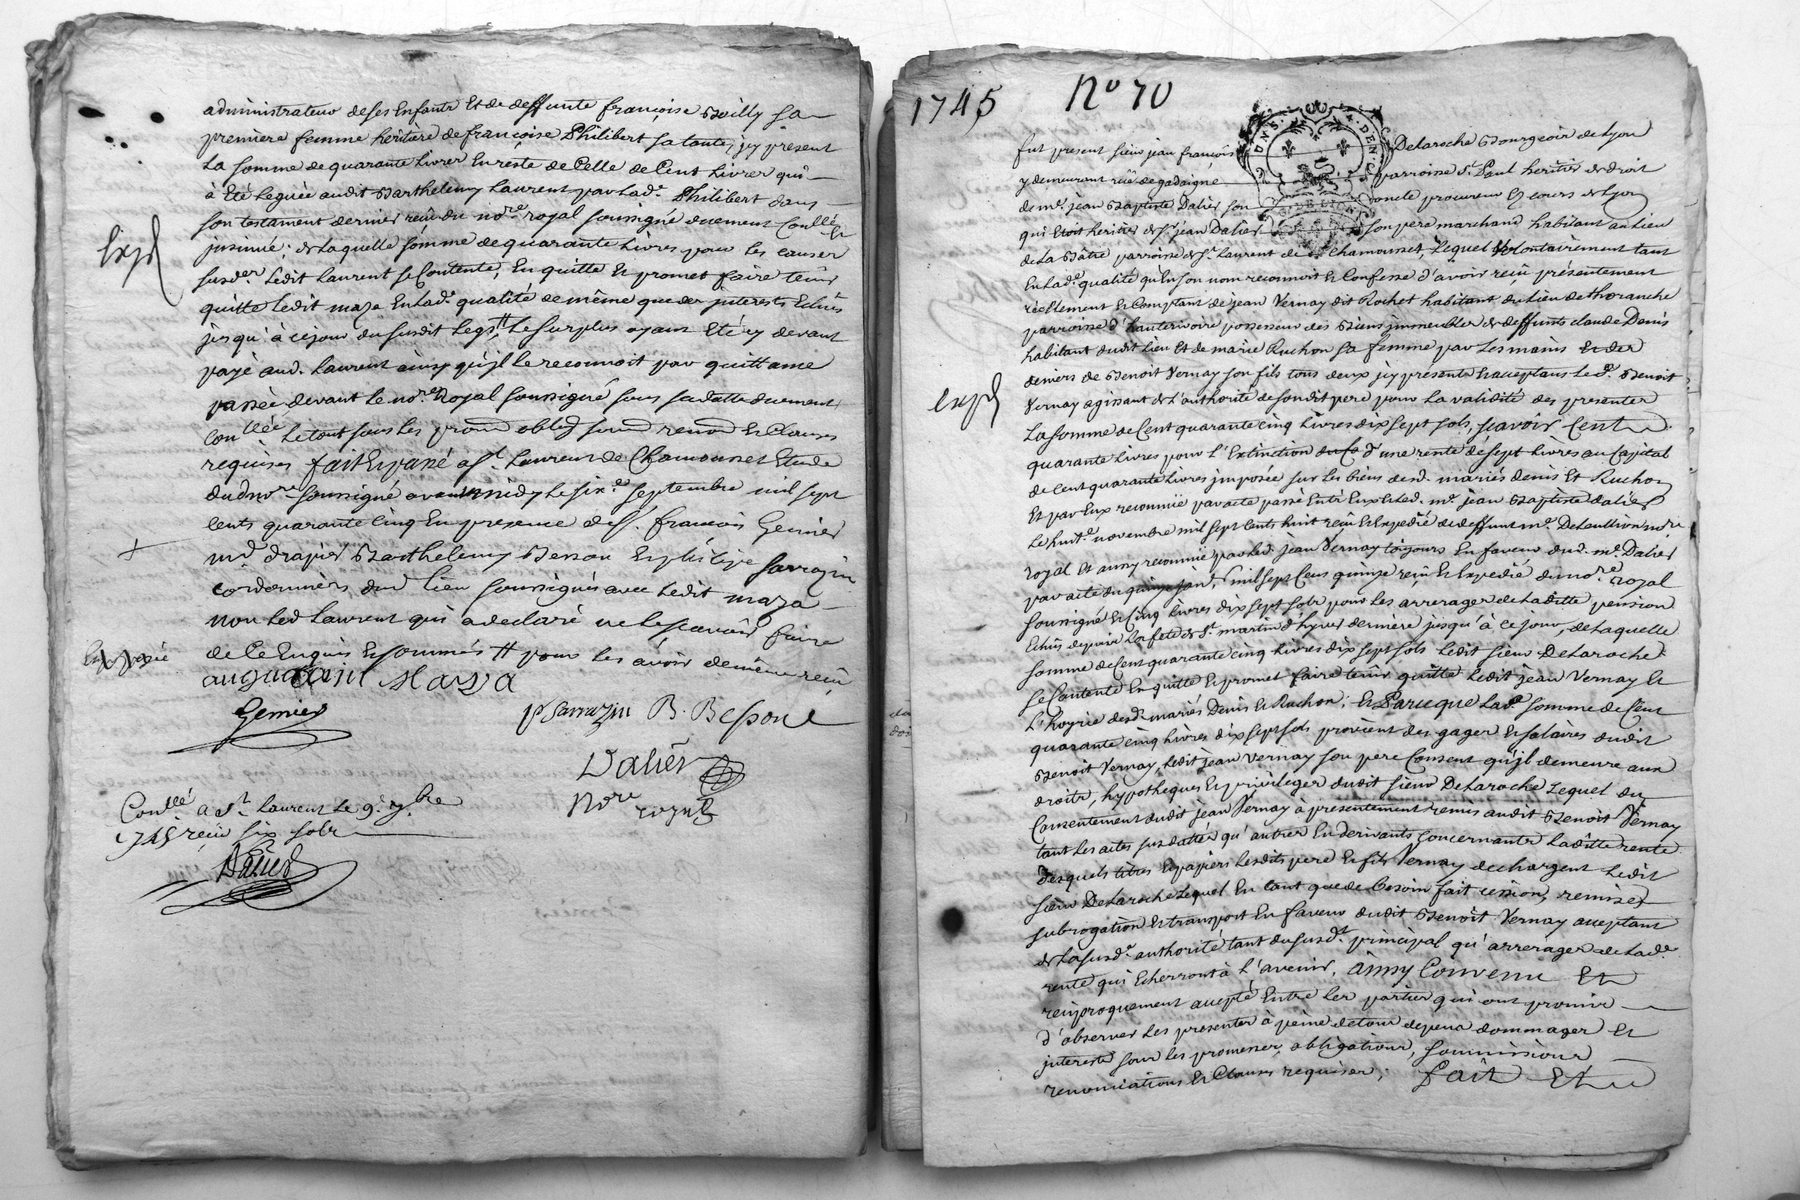 administrateur de ses Enfants Et de deffunte françoise Boilly sa
premiere femme heritiere de françoise Philibert sa tante, jcy present
La somme de quarante Livres En reste de Celle de Cent Livres qui
à Eté leguée audit Barthelemy Laurent par lad.e Philibert dans
son testament dernier reçu du no.re royal soussigné duement Con.llé Et
jnsinué; de laquelle somme de quarante Livres pour les causes
susd.es Ledit Laurent se Contente, En quitte Et promet faire tenir
quitte Ledit maza En lad.e qualité de même que des jnterests Echûs
jusqu'à ce jour du susdit Legs, # Le surplus ayant Eté cy devant
payé aud. Laurent ainsy qu'jl le reconnoit par quittance
passée devant le no.re Royal soussigné sous sa datte duement
con.llée Le tout sous les prom oblig soum renon Et Clauses
requises fait Et passé a S.t Laurent de Chamousset Etude
dud no.re soussigné avant midy Le six.e septembre mil sept
cents quarante Cinq En presence de S.r francois Gemier
m.d drapier Barthelemy Besson Et philipe sarrazin
cordonniers dud Lieu soussignés avec Ledit maza
non Led Laurent qui a declaré ne le scavoir faire
de Ce Enquis Et sommés # pour les avoir demême reçu
Expedié
Maza
Gemier
P Sarrazin B. Beson
Dalier
No.re royal
Con.llé a S.t Laurent Le 9.e 7.bre
1745 reçu six sols
Dalier
1745 N.o 70
Expd
fut present sieur jean francois DeLaroche Bourgeois de Lyon
y demeurant rüe de gadaigne parroisse S.t Paul heritier de droit
de m.e jean Baptiste Dalier son oncle procureur Es cours de Lyon
qui Etoit heritier de S.r jean Dalier son pere marchand habitant au Lieu
de La Bâtie parroisse de S.t Laurent de Chamousset, Lequel Volontairement tant
En lad.e qualité qu'En son nom reconnoit Et Confesse d'avoir reçû présentement
réellement Et Comptant de jean Vernay dit Rochet habitant du Lieu de thoranche
parroisse d'hauterivoire possesseur des Biens jmmeubles de deffunts claude Denis
habitant dudit Lieu Et de marie Ruchon sa femme par Les mains Et des
deniers de Benoit Vernay son fils tous deux jcy presents Et acceptans Led.t Benoit
Vernay agissant de L'authorité de sondit pere pour La validité des presentes
La somme de Cent quarante Cinq Livres dix sept sols, scavoir Cent
quarante Livres pour L'Extinction d'une rente de sept Livres au Capital
de Cent quarante Livres jmposée sur les biens desd. mariés denis Et Ruchon
Et par Eux reconnüe par acte passé Entr'Eux Et led. m.e jean Baptiste dalier
Le huit.e novembre mil sept cents huit reçu Et Expedié de deffunt m.e no.re
royal Et aussy reconnüe par led. jean Vernay toujours En faveur dud. m.e Dalier
par acte du quinze jan.r mil sept Cens quinze reçu Et Expedié du no.re royal
soussigné Et Cinq Livres dix sept sols pour les arrerages de Laditte pension
Echûs depuis La fete de S.t martin d'hyver derniere jusqu'à ce jour, de Laquelle
somme de Cent quarante cinq Livres dix sept sols Ledit sieur DeLaroche
se Contente En quitte Et promet faire tenir quitte Ledit jean Vernay Et
L'hoyrie desd. mariés Denis Et Ruchon; Et Parceque Lad.e somme de Cent
quarante cinq Livres dix sept sols provient des gages Et salaires dudit
Benoit Vernay, Ledit jean Vernay son pere Consent qu'jl demeure aux
droits, hypotheques Et privileges dudit sieur DeLaroche Lequel du
Consentement dudit jean Vernay à presentement remis audit Benoit Vernay
tant les actes sus dattés qu'autres En derivants Concernants Laditte rente
desquels titres Et papiers Lesdits pere Et fils Vernay dechargent Ledit
sieur DeLaroche Lequel En tant que de besoin fait cession, remise
subrogation Et transport En faveur dudit Benoit Vernay acceptant
de La susd.e authorité tant du susd.t principal qu'arrerages de Lad.e
rente qui Echerront à L'avenir. Ainsy Convenu Et
reciproquement accepté Entre les parties qui ont promis
d'observer Les presentes à peine de tous depens dommages Et
jnterests sous les promesses, obligations, soumissions
renonciations Et Clauses requises; fait Et